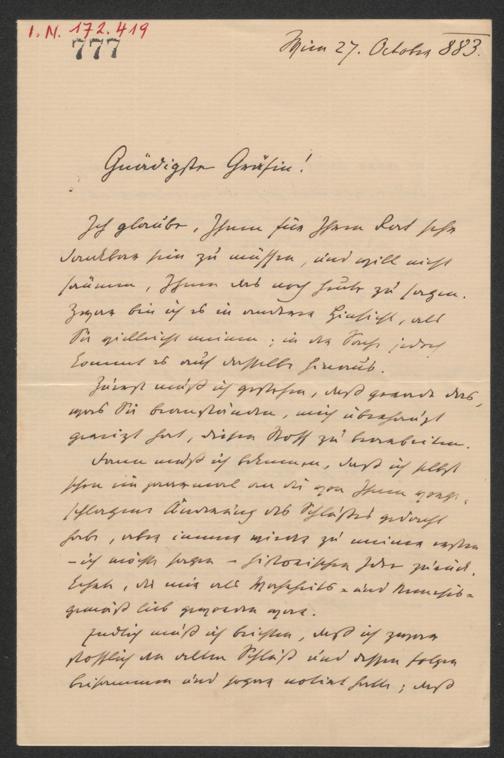 I. N. 172.419
777
Wien 27. October 883.
Gnädigste Gräfin!
Ich glaube, Ihnen für Ihren Rat sehr
dankbar sein zu müssen, und will nicht
säumen, Ihnen das noch heute zu sagen.
Zwar bin ich es in anderer Hinsicht, als
Sie vielleicht meinen; in der Sache jedoch
kommt es auf dasselbe hinaus.
Zuerst muß ich gestehen, daß gerade das,
was Sie beanständen, mich überhaupt
gereizt hat, diesen Stoff zu bearbeiten.
Dann muß ich bekennen, daß ich selbst
schon ein paarmal an die von Ihnen vorge-
schlagene Änderung des Schlußes gedacht
habe, aber immer wieder zu meiner ersten
– ich möchte sagen – historischen Idee zurück
kehrte, die mir als Wahrheits- und
gemäß lieb geworden war.
Endlich muß ich beichten, daß ich zwar
stofflich den alten Schluß und dessen Folgen
beisammen und sogar notirt hatte; daß